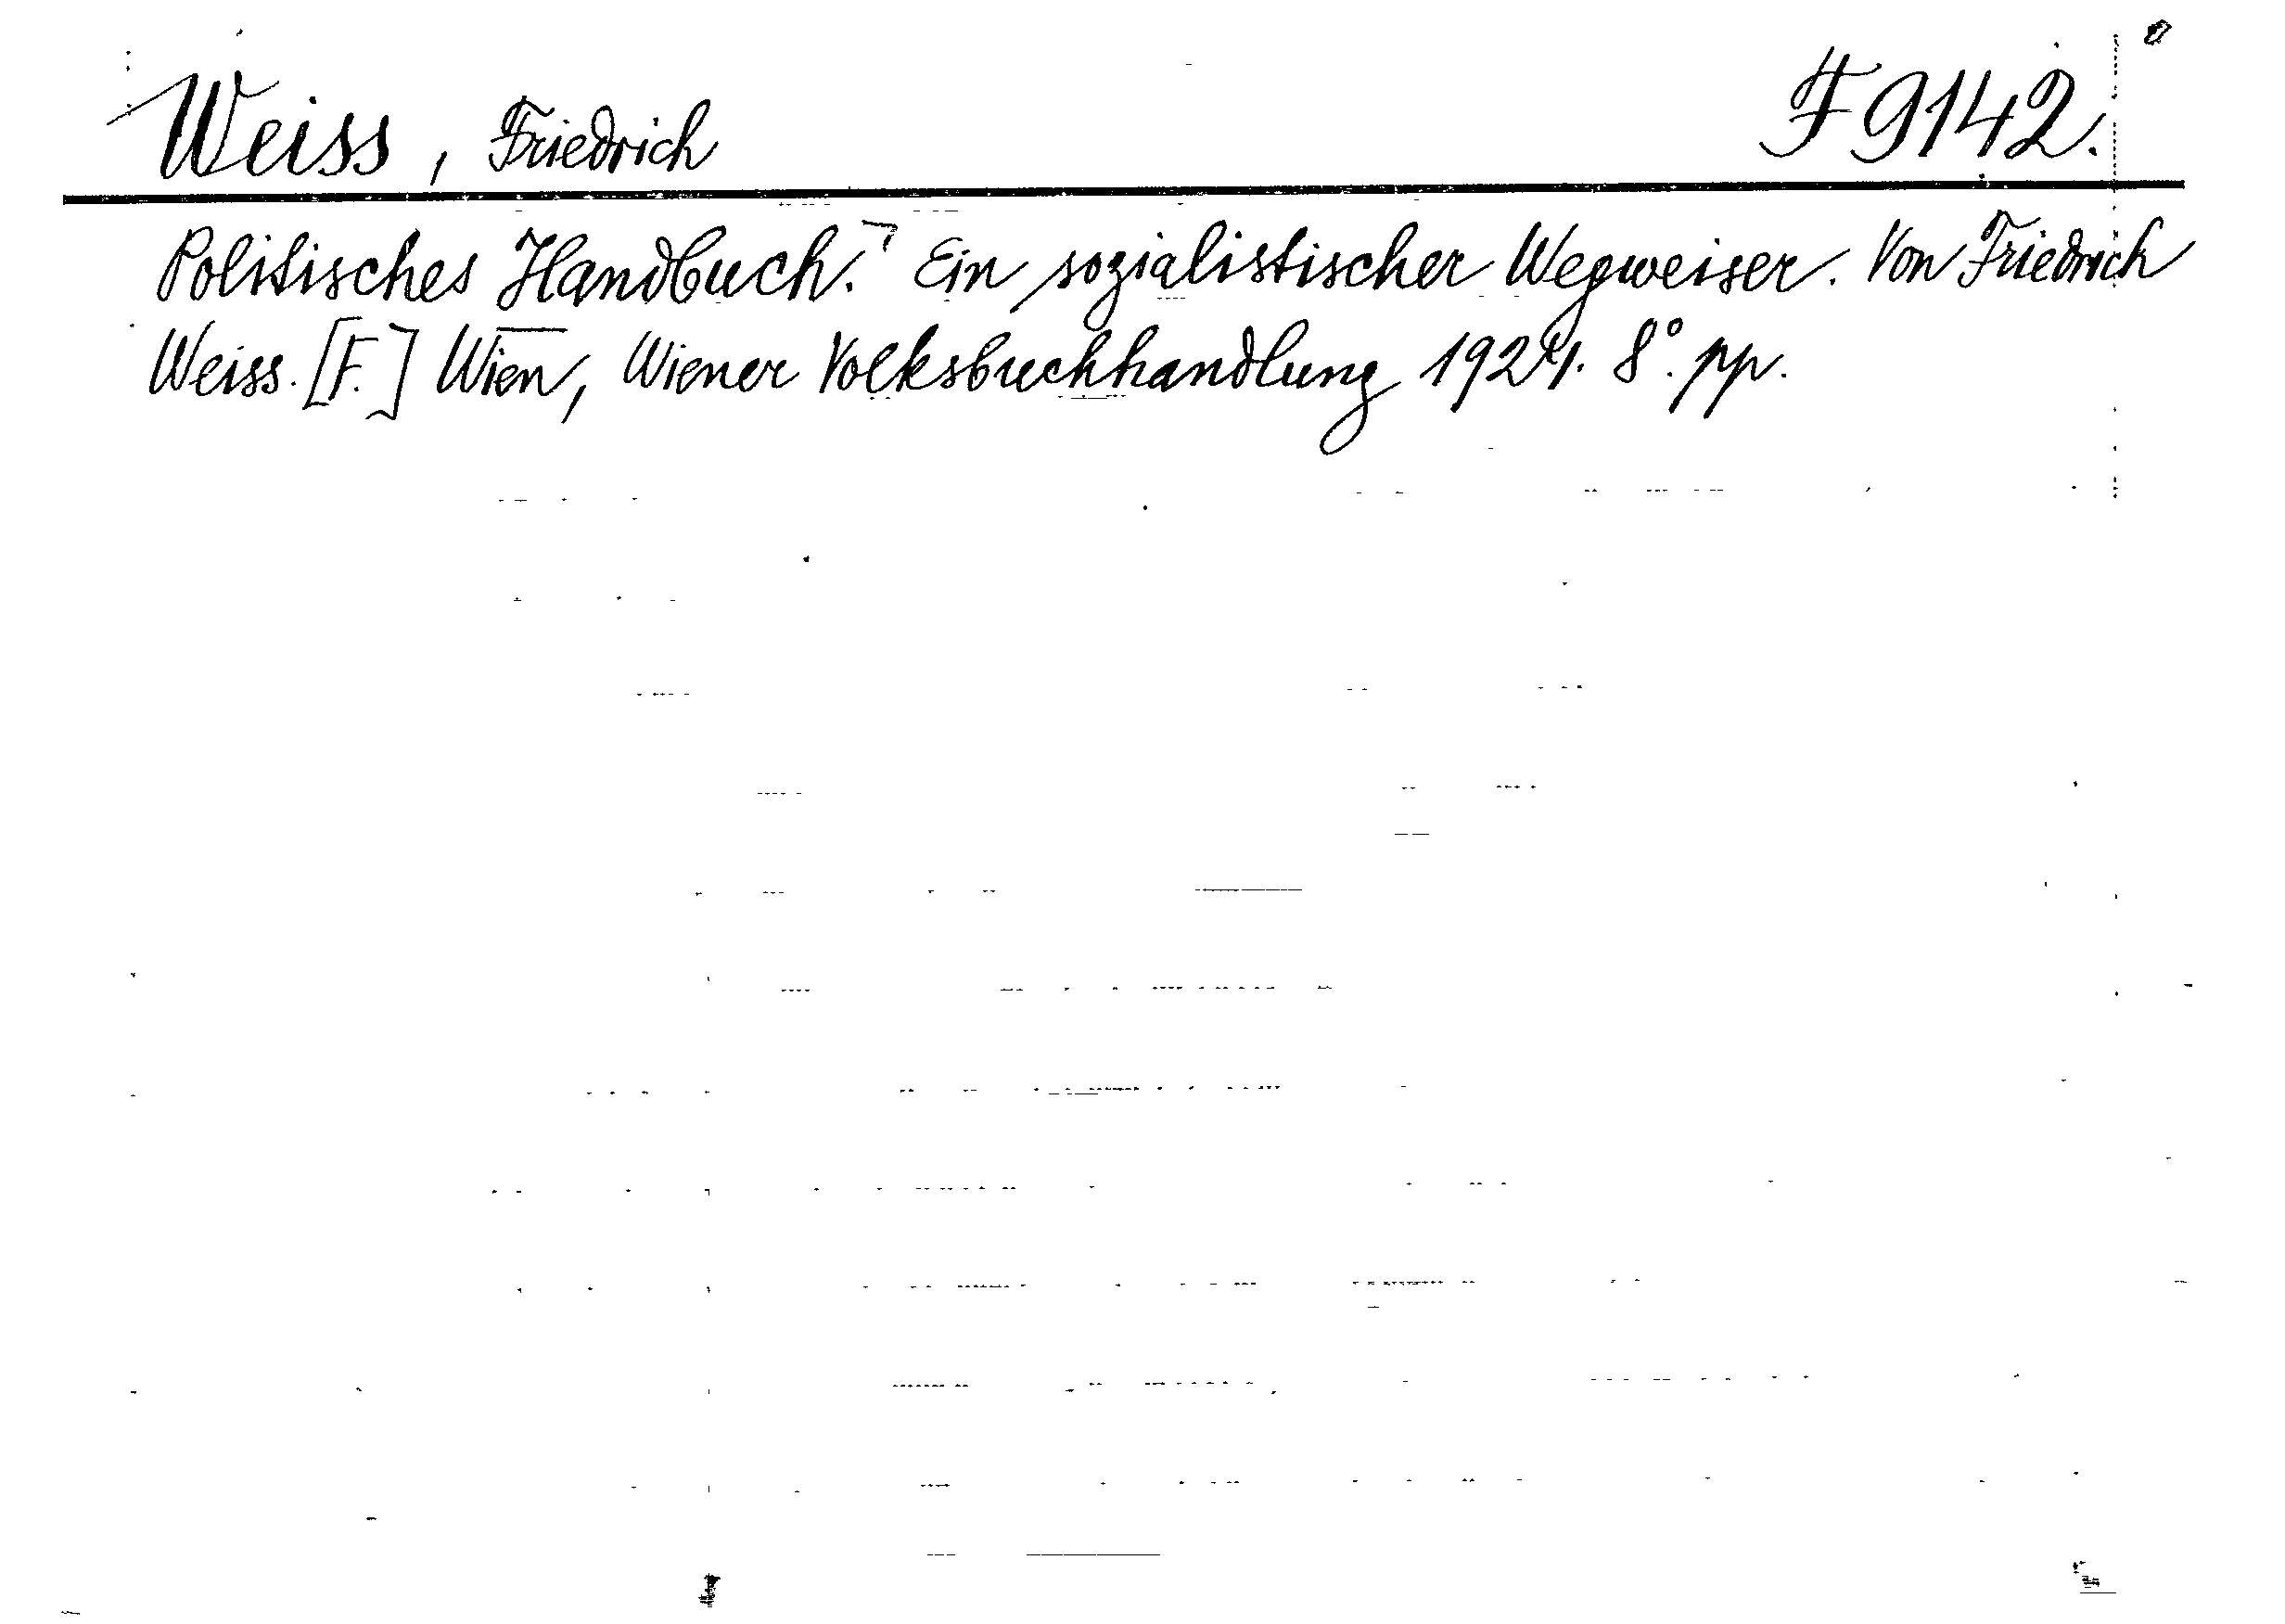 Weiss, Friedrich F 9142.
Politisches Handbuch. Ein sozialistischer Wegweiser. Von Friedrich
Weiss. [F.] Wien, Wiener Volksbuchhandlung 1924. 8°. pp.